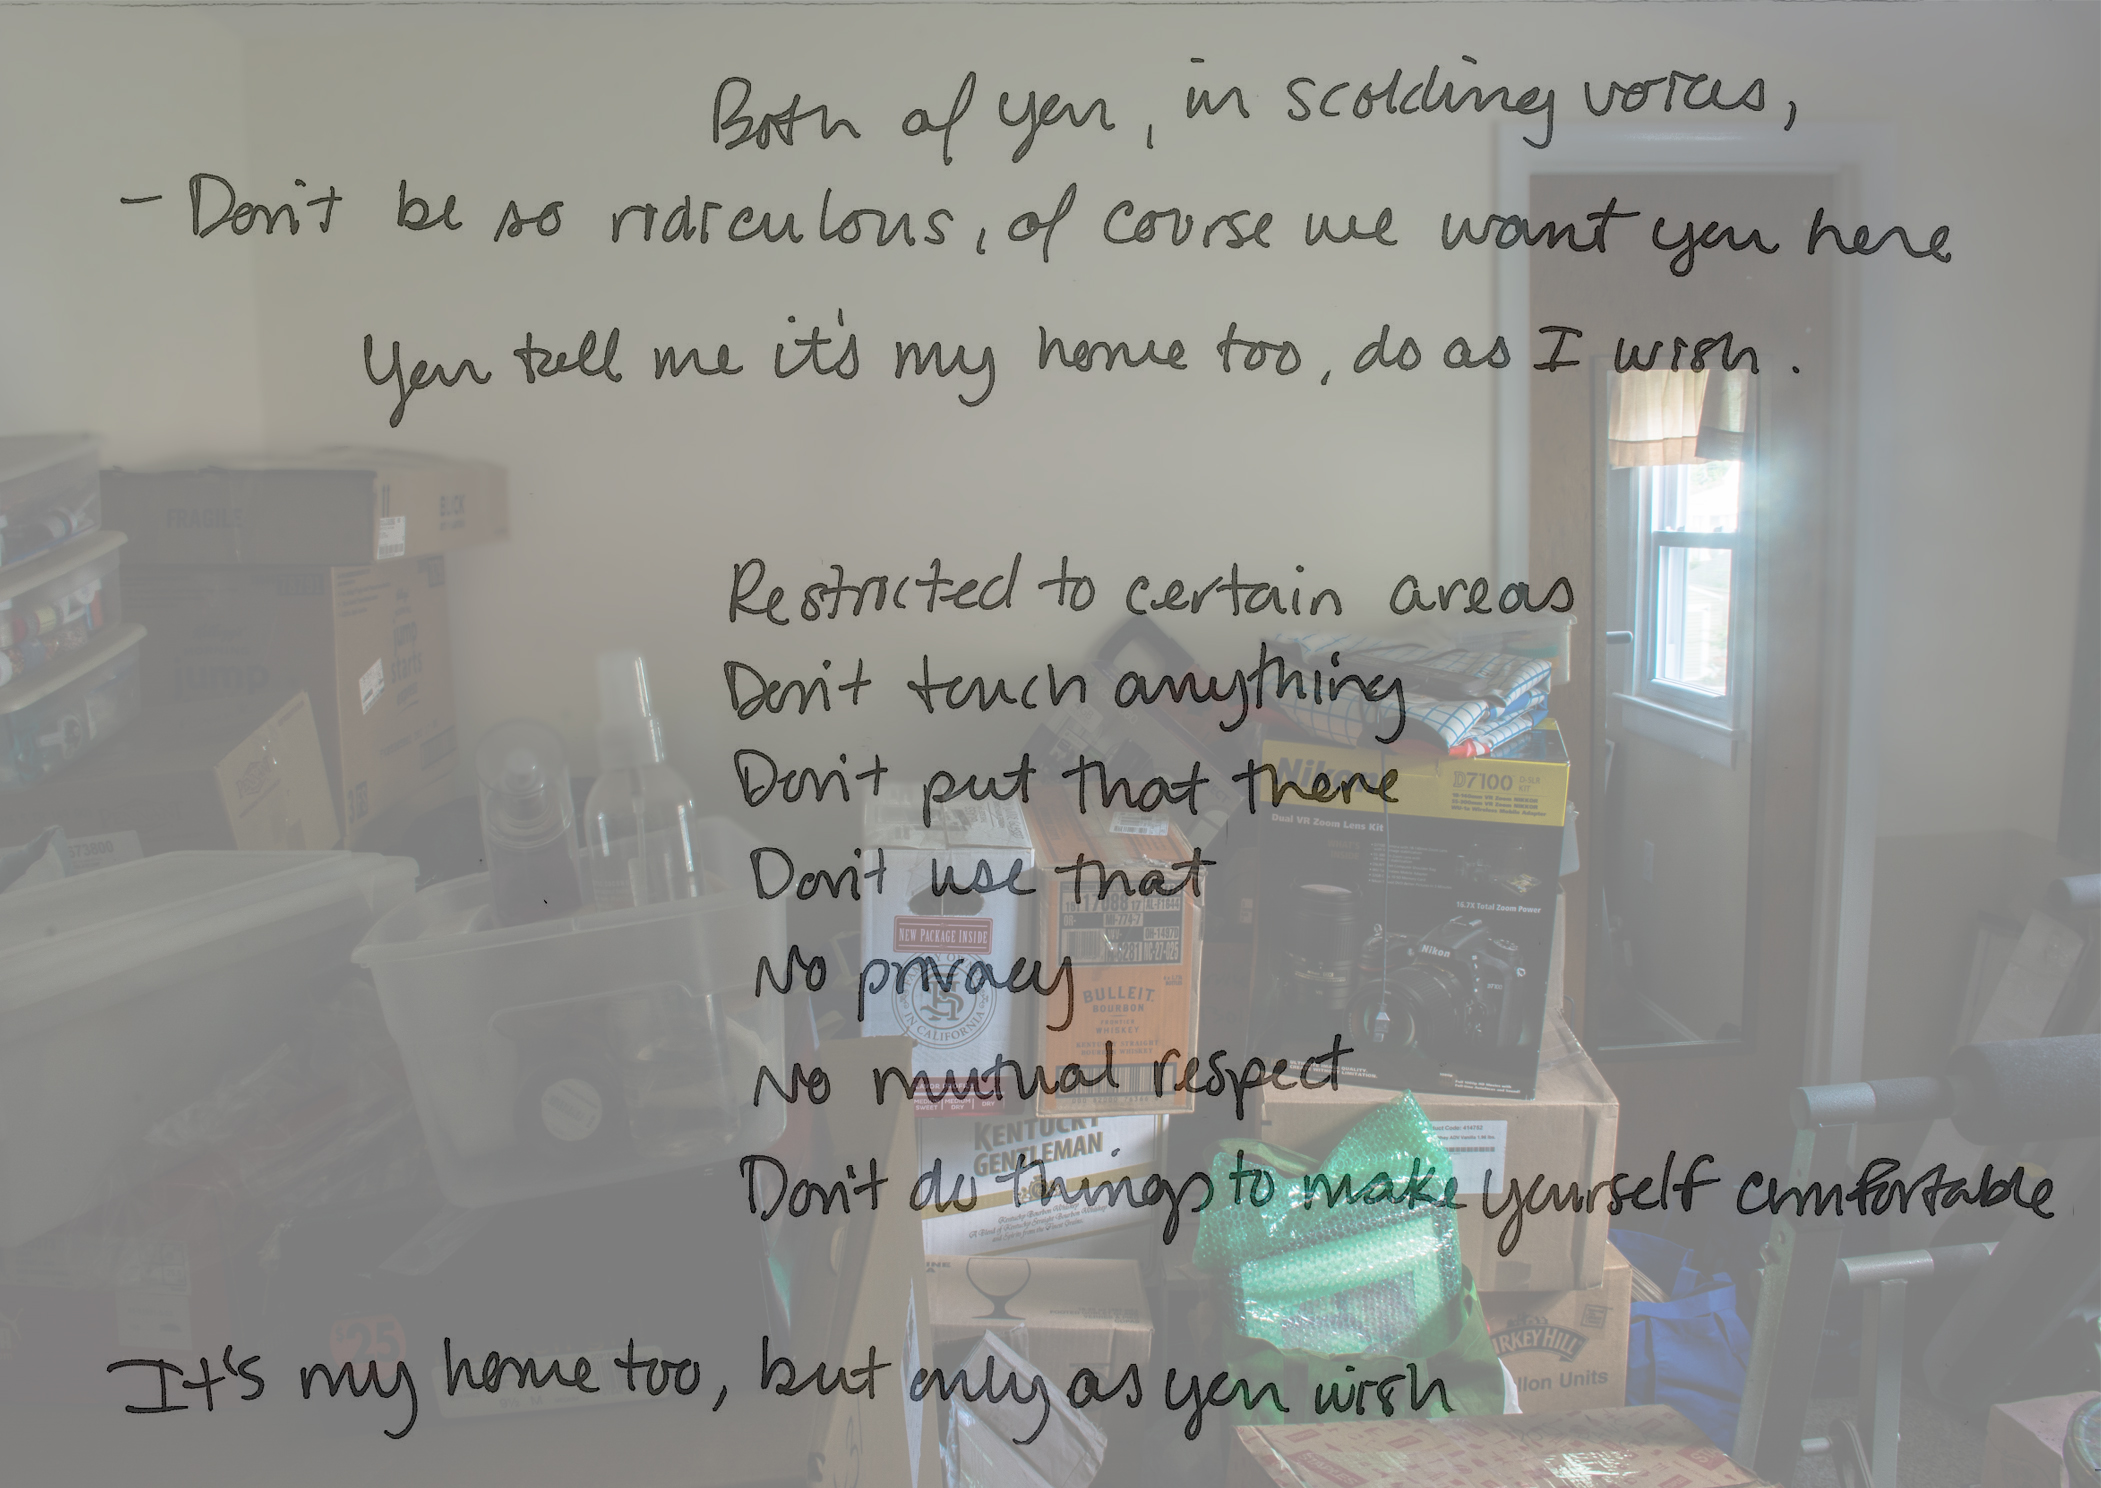 Both of you, in scolding voices,
- Don't be so ridiculous, of course we want you here
You tell me it's my home too, do as I wish.
Restricted to certain areas
Don't touch anything
Don't put that there
Don't use that
No privacy
No mutual respect
Don't do things to make yourself comfortable
It's my home too, but only as you wish
FRAGILE
BLICK
jump
jump
starts
573800
Nikon
D7100 D-SLR
KIT
Dual VR Zoom Lens Kit
16.7X Total Zoom Power
Nikon
NEW PACKAGE INSIDE
IN CALIFORNIA
17088 17
BULLEIT
BOURBON
FRONTIER
WHISKEY
SWEET
DRY
DRY
KENTUCKY
GENTLEMAN
Kentucky Bourbon Whiskey
414742
$25
TURKEY HILL
Units